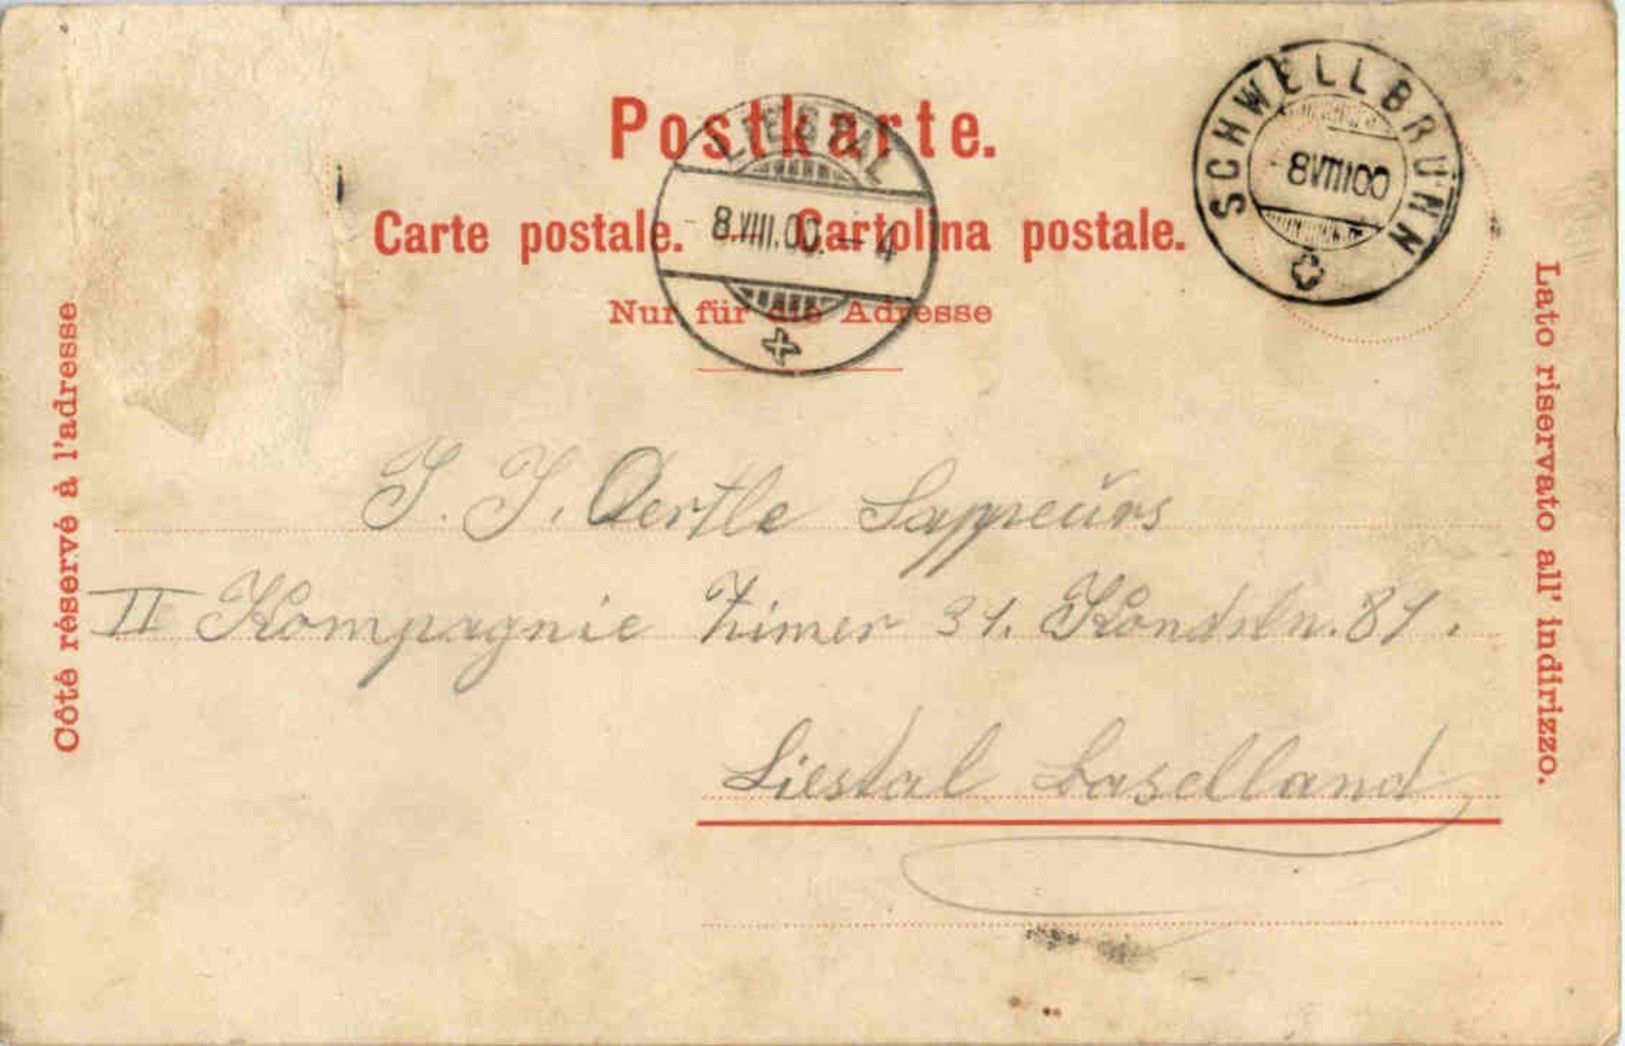 Postkarte.
Carte postale. Cartolina postale.
Nur für die Adresse
LIESTAL
8.VIII.00.-4
SCHWELLBRUNN
8VIII00
Côté réservé à l'adresse
Lato riservato all' indirizzo.
J. J. Oertle Sappeŭrs
II Kompagnie Zimer 31. 87.
Liestal Baselland